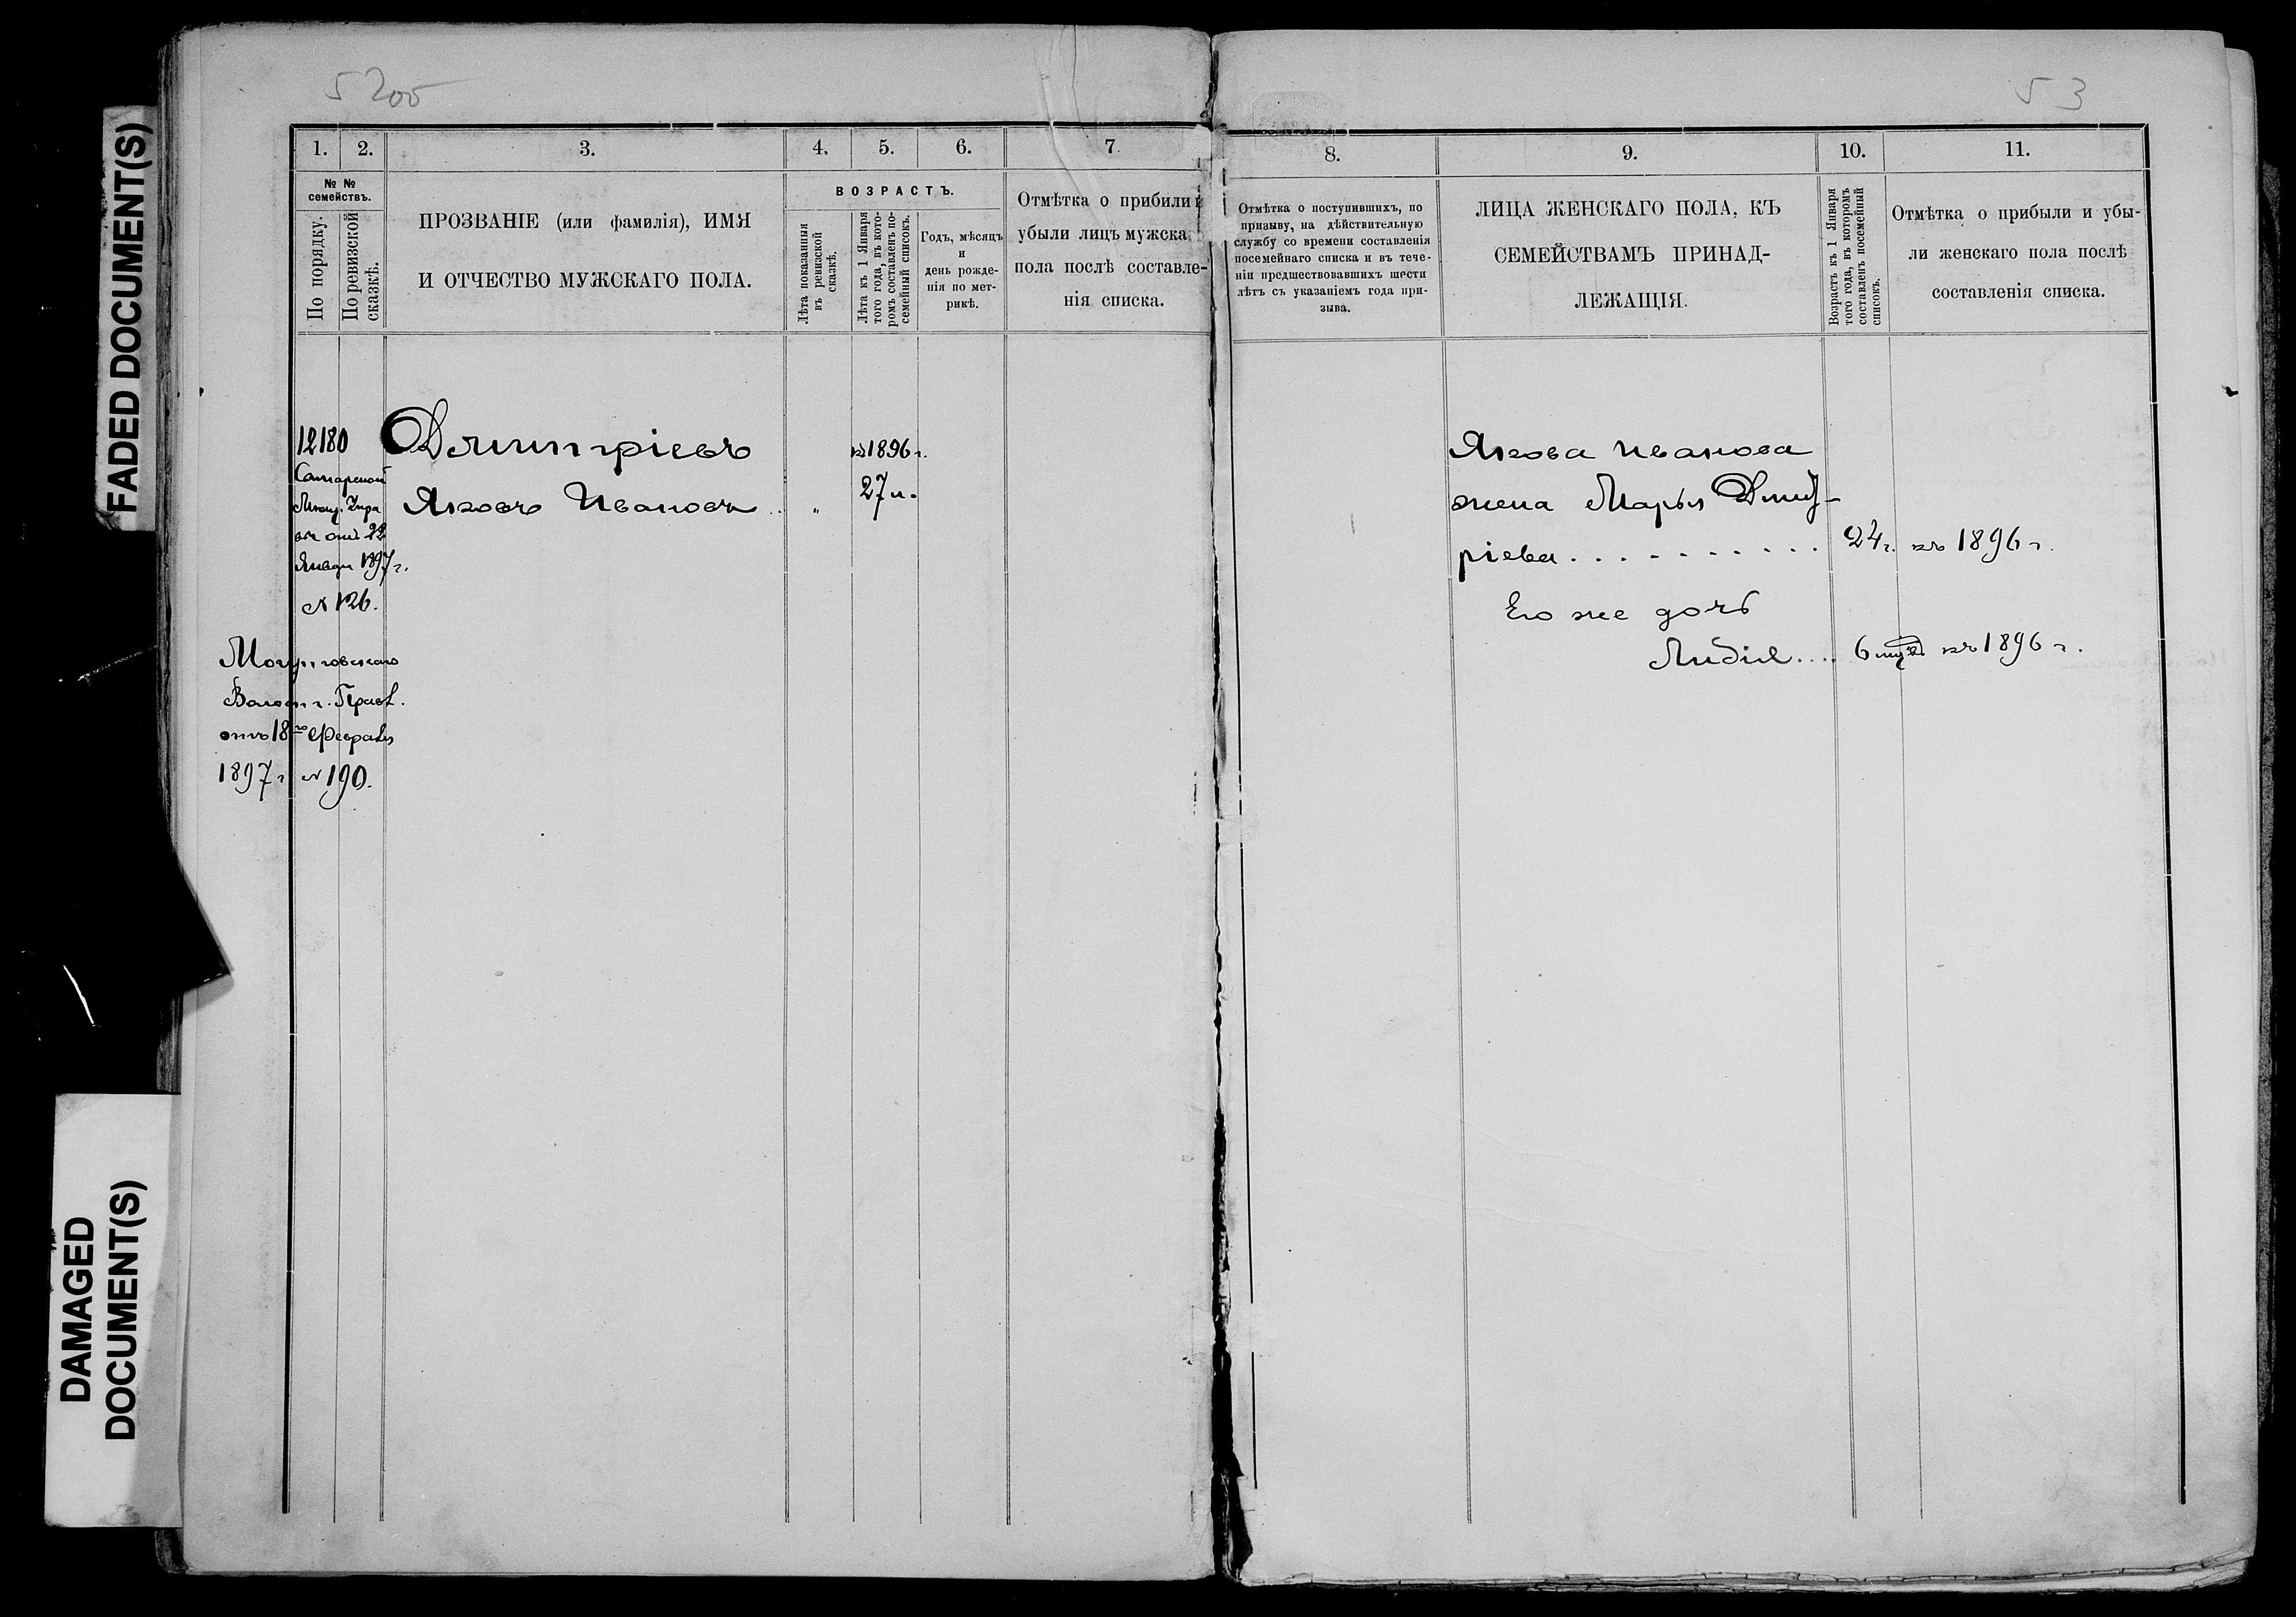 FADED DOCUMENT(S)
DAMAGED
DOCUMENT(S)
5200
53
1.
2.
3.
4.
5.
6.
7
№ №
семействъ.
По порядку.
По ревизской
сказкѣ.
ПРОЗВАНІЕ (или фамилія), ИМЯ
И ОТЧЕСТВО МУЖСКАГО ПОЛА.
ВОЗРАСТЪ.
Лѣта показанныя
въ ревизской
сказкѣ.
Лѣта къ 1 Января
того года, въ кото-
ромъ составленъ по-
семейный списокъ.
Годъ, мѣсяцъ
и
день рожде-
нія по мет-
рикѣ.
Отмѣтка о прибыли и
убыли лицъ мужска
пола послѣ составле-
нія списка.
12180
Самарской
от 22
Января 1897 г.
№ 126.
Волостн. Правл.
отъ 18го Февраля
1897 г. № 190.
Дмитріевъ
Яковъ Ивановъ ..
"
къ 1896 г.
27 л.
8.
9.
10.
11.
Отмѣтка о поступившихъ, по
призыву, на дѣйствительную
службу со времени составленія
посемейнаго списка и въ тече-
ніи предшествовавшихъ шести
лѣтъ съ указаніемъ года при-
зыва.
ЛИЦА ЖЕНСКАГО ПОЛА, КЪ
СЕМЕЙСТВАМЪ ПРИНАД-
ЛЕЖАЩІЯ.
Возрастъ къ 1 Января
того года, въ которомъ
составленъ посемейный
списокъ.
Отмѣтка о прибыли и убы-
ли женскаго пола послѣ
составленія списка.
Якова Иванова
жена Марья Дмит-
ріева . . . . . . . . . . 24 г. къ 1896 г.
Его же дочь
Лидія .... 6 мѣс. къ 1896 г.